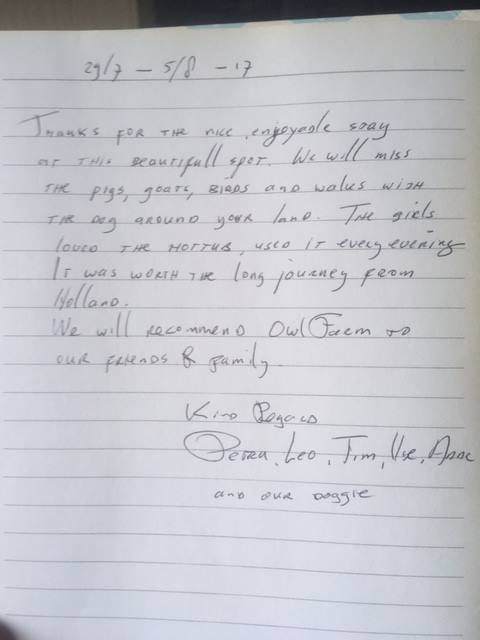 29/7 - 5/8 - 17
Thanks for the nice, enjoyable stay
at this beautifull spot. We will miss
the pigs, goats, birds and walks with
the dog around your land. The girls
loved the hottub, used it every evening
It was worth the long journey from
Holland.
We will recommend Owl Farm to
our friends & family.
Kind Regards
Petra, Leo, Tim,
and our doggie